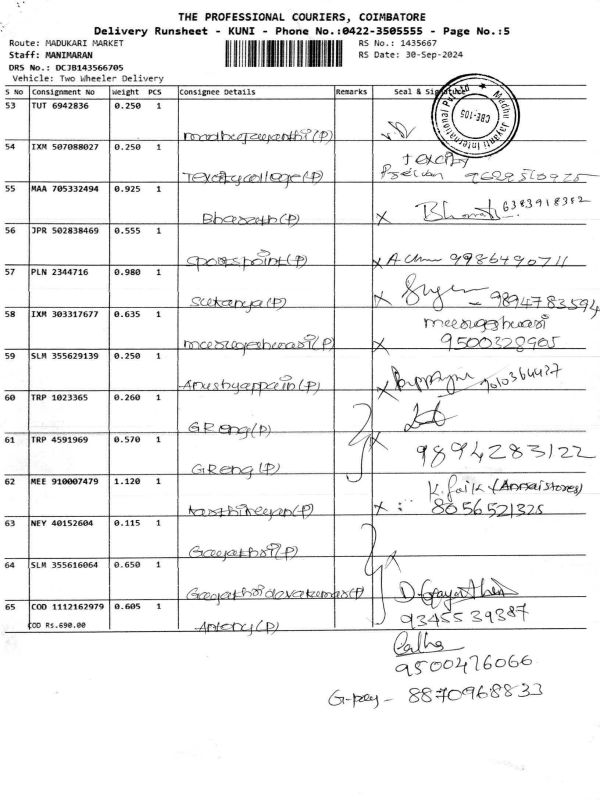 THE PROFESSIONAL COURIERS, COIMBATORE
Delivery Runsheet - KUNI - Phone No.:0422-3505555 - Page No.:5
Route: MADUKARI MARKET RS No.: 1435667
Staff: MANIMARAN RS Date: 30-Sep-2024
DRS No.: DCJB143566705
Vehicle: Two Wheeler Delivery
S No Consignment No Weight PCS Consignee Details Remarks Seal & Signature
Madhu Jayanti International Pvt Ltd ★ CBE-105
53 TUT 6942836 0.250 1
madhujayanthi(P)
54 IXM 507088027 0.250 1 Texcity
Texcitycollege(P)
55 MAA 705332494 0.925 1 Bharath 6383918352
Bharath(P) x
56 JPR 502838469 0.555 1
Sportspoint(P) x 9986490711
57 PLN 2344716 0.980 1
Sukanya(P) x 9894783594
58 IXM 303317677 0.635 1 murugeshwari
murugeshwari(P) x 9500328905
59 SLM 355629139 0.250 1
Anushyappain(P) x
60 TRP 1023365 0.260 1
GReng(P)
61 TRP 4591969 0.570 1 x
GReng(P) 9894283122
62 MEE 910007479 1.120 1 (Annai stores)
karthikeyan(P) x : 8056521325
63 NEY 40152604 0.115 1
Gayathri(P)
64 SLM 355616064 0.650 1 x
Gayathridevakumar(P)
65 COD 1112162979 0.605 1 9345539387
COD Rs.690.00 Antony(P)
9500476066
G-pay - 8870968833